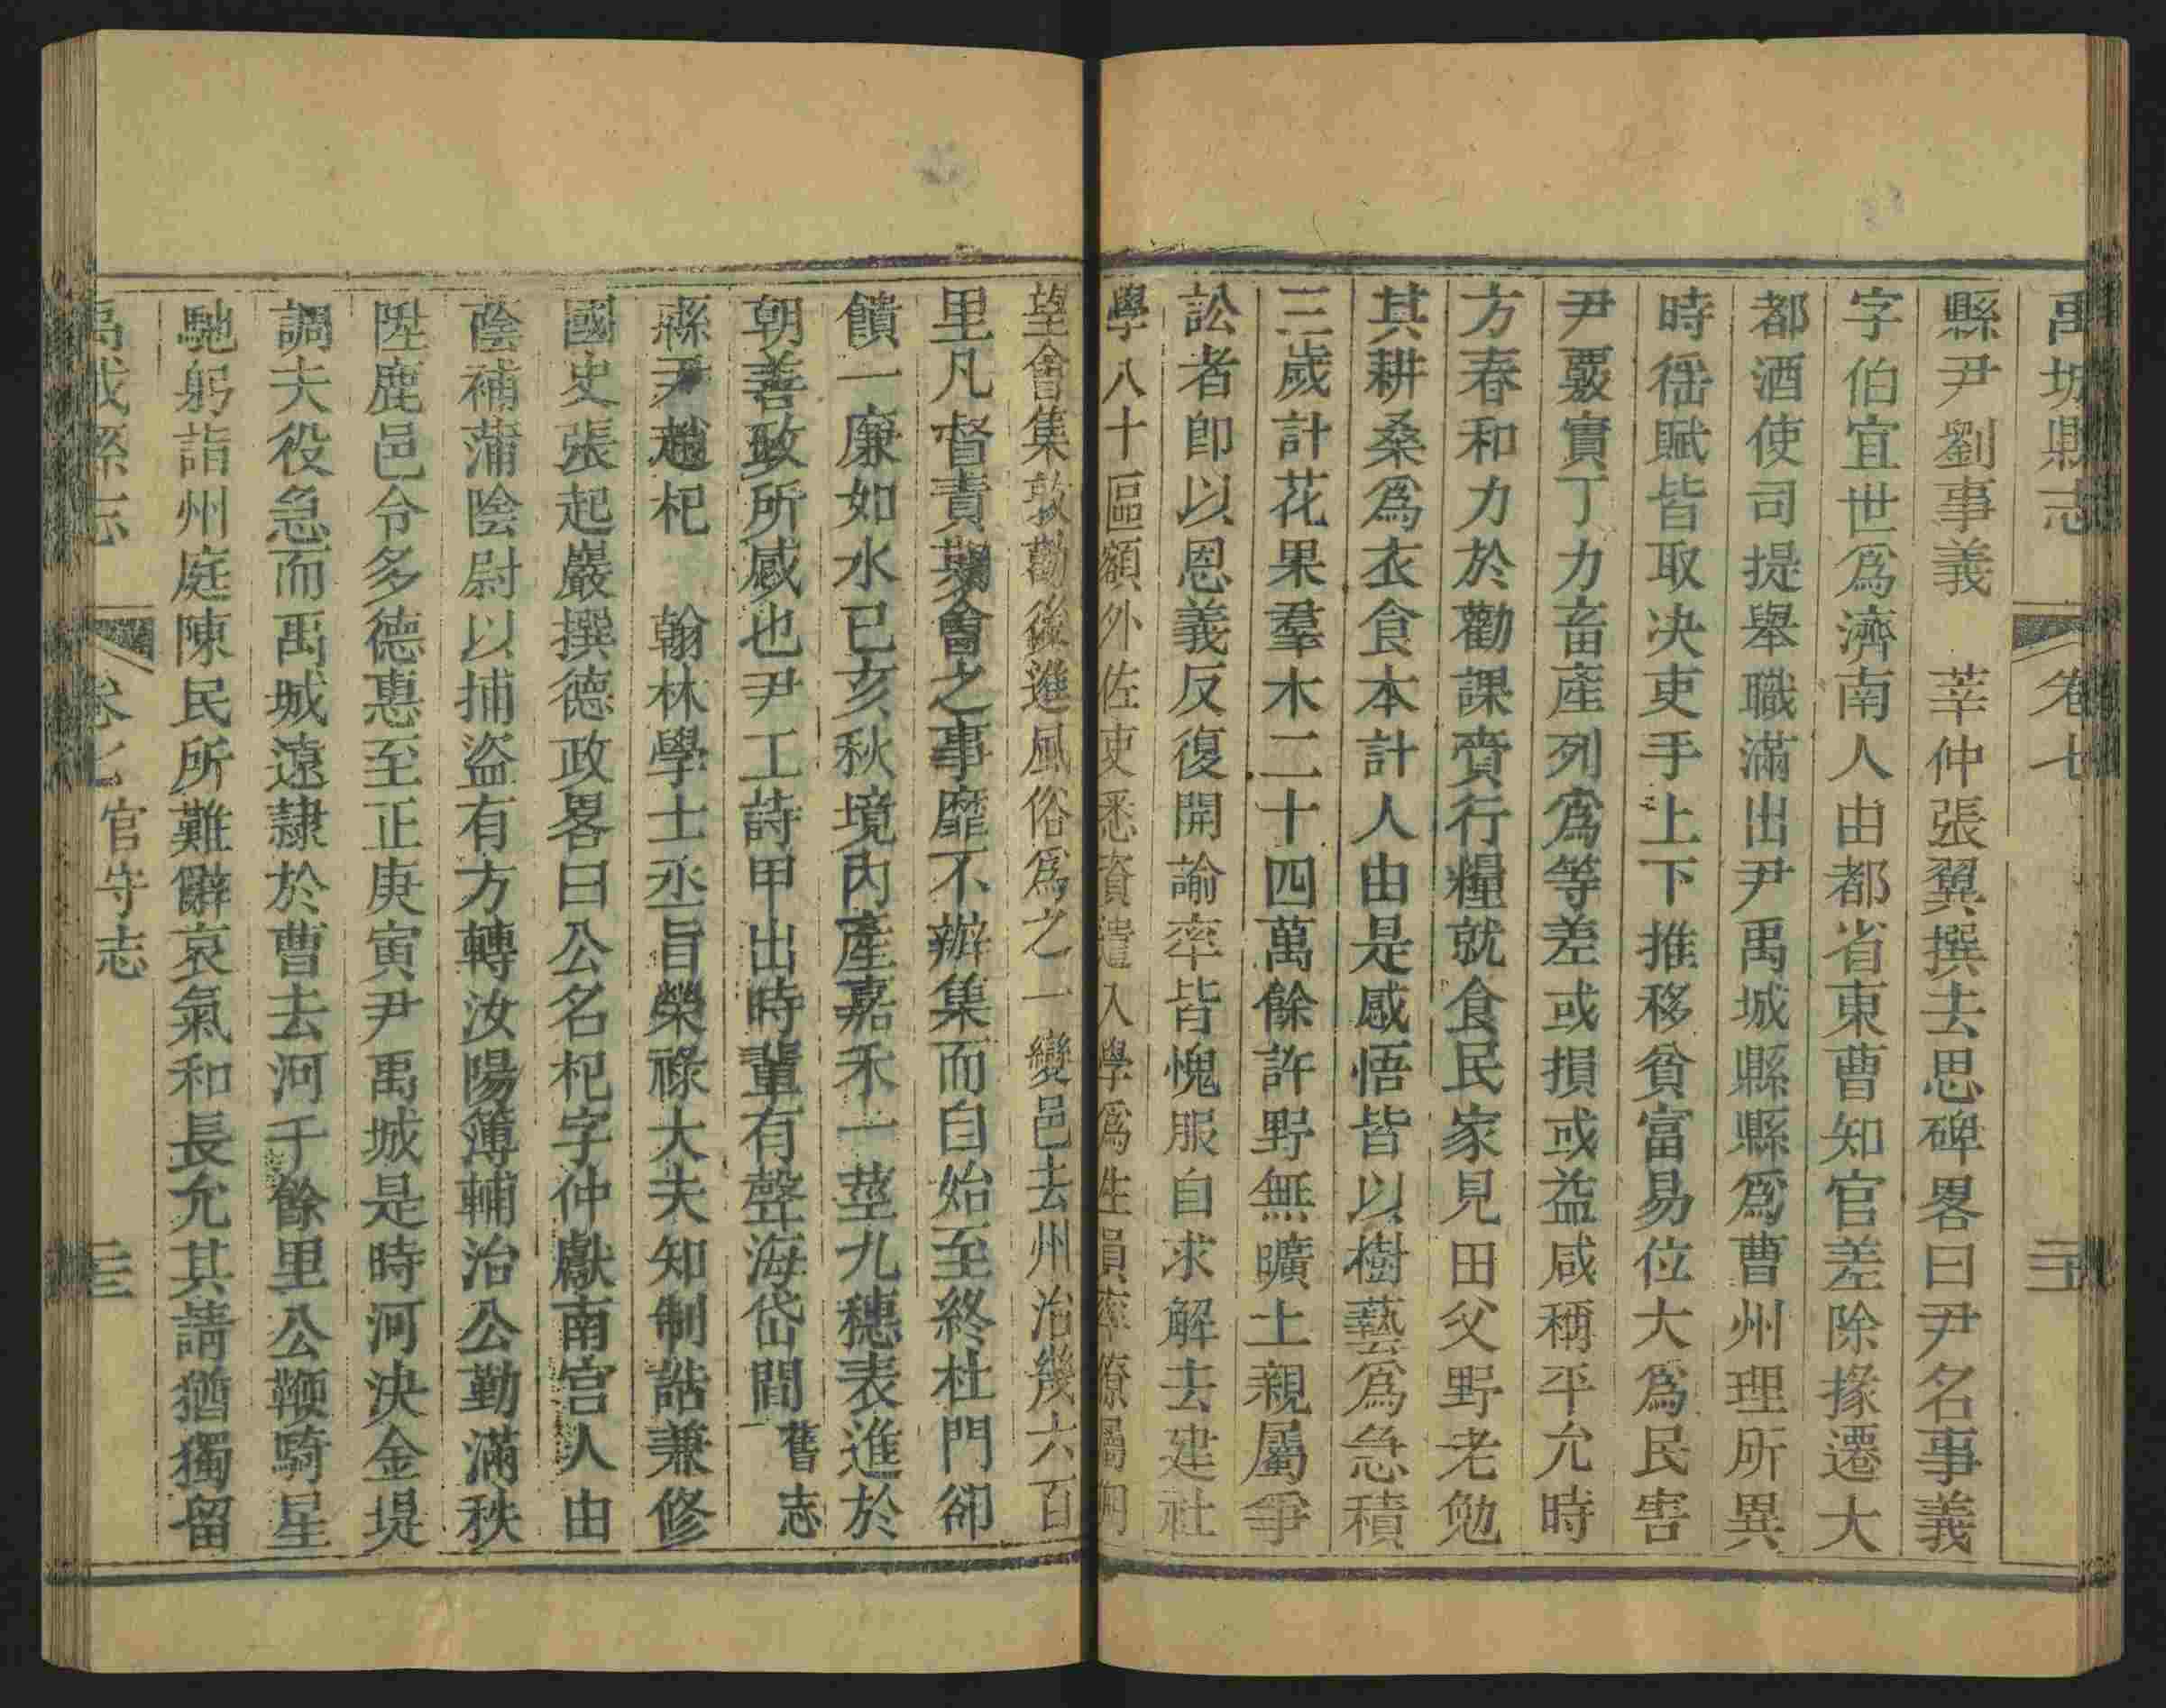 禹城縣志 卷七
縣尹劉事義 莘仲張翼撰去思碑畧曰尹名事義
字伯宜世爲濟南人由都省東曹知官差除掾遷大
都酒使司提舉職滿出尹禹城縣縣爲曹州理所異
時徭賦皆取决吏手上下推移貧富易位大爲民害
尹覈實丁力畜產列爲等差或損或益咸稱平允時
方春和力於勸課賫行糧就食民家見田父野老勉
其耕桑爲衣食本計人由是感悟皆以樹藝爲急積
三歲計花果羣木二十四萬餘許野無曠土親屬爭
訟者卽以恩義反復開諭率皆愧服自求解去建社
學八十區額外佐吏悉資遣入學爲生員率僚屬朔
望會集敦勸後進風俗爲之一變邑去州治幾六百
里凡督責期會之事靡不辦集而自始至終杜門卻
饋一廉如水已亥秋境內產嘉禾一莖九穗表進於
朝善政所感也尹工詩甲出時輩有聲海岱間 舊志
縣尹趙杞 翰林學士丞旨榮祿大夫知制誥兼修
國史張起巖撰德政畧曰公名杞字仲獻南宫人由
蔭補蒲陰尉以捕盜有方轉汝陽簿輔治公勤滿秩
陞鹿邑令多德惠至正庚寅尹禹城是時河決金堤
調夫役急而禹城遠隸於曹去河千餘里公鞭騎星
馳躬詣州庭陳民所難辭哀氣和長允其請猶獨留
禹城縣志 卷七 官守志